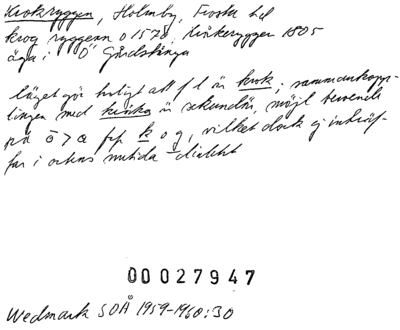 Krokryggen, Holmby, Frosta hd
krog ryggenn o 1578, Kirkeryggen 1805
äga i Ö Gårdstånga
läget gör troligt att f l är krok; sammankopp-
lingen med kirka är sekundär, möjl beroende
på ō > a frf k o g, vilket dock ej inträf-
far i ortens nutida dialekt
00027947
Wedmark SOÅ 1959-1960:30